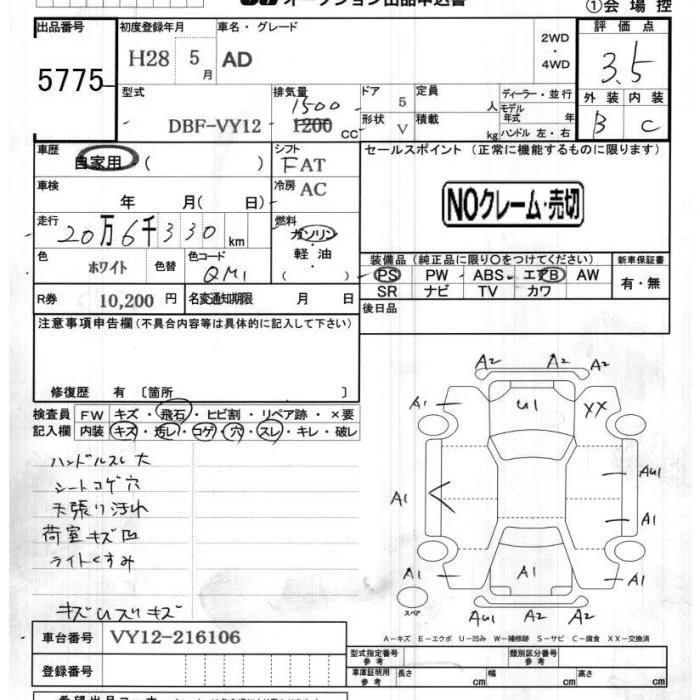 オークション出品申込書
①会場控
出品番号
5775
初度登録年月
H28 5月
車名・グレード
AD
2WD
・
4WD
評価点
3.5
外装 内装
B C
型式
DBF-VY12
排気量
1500
1200 cc
ドア
5
形状
V
定員
人
積載
kg
ディーラー・並行
モデル
年式 年
ハンドル 左・右
車歴
自家用 ( )
シフト
FAT
車検
年 月( 日)
冷房
AC
走行
20万6千330 km
燃料
ガソリン
・
軽油
( )
色
ホワイト
色替
色コード
QM1
R券
10,200 円
名変通知期限 月 日
セールスポイント (正常に機能するものに限ります)
NOクレーム・売切
装備品 (純正品に限り○をつけてください)
PS PW ABS エアB AW
SR ナビ TV カワ
新車保証書
有・無
後日品
注意事項申告欄(不具合内容等は具体的に記入して下さい)
修復歴 有 〔箇所 〕
検査員
記入欄
FW キズ・飛石・ヒビ割・リペア跡・×要
内装 キズ・汚レ・コゲ・穴・スレ・キレ・破レ
ハンドルスレ大
シートコゲ穴
天張り汚れ
荷室キズ凹
ライトくすみ
キズUズリキズ
A2 A2 A2
A1 U1 XX
AU1
A1 A1
A1 A1 A1
スペア
AU1 A2 A2
A−キズ E−エクボ U−凹み W−補修跡 S−サビ C−腐食 XX−交換済
車台番号
VY12-216106
登録番号
型式指定番号
参考
類別区分番号
参考
車庫証明用
参考
長さ cm 幅 cm 高さ cm
希望出品コーナー